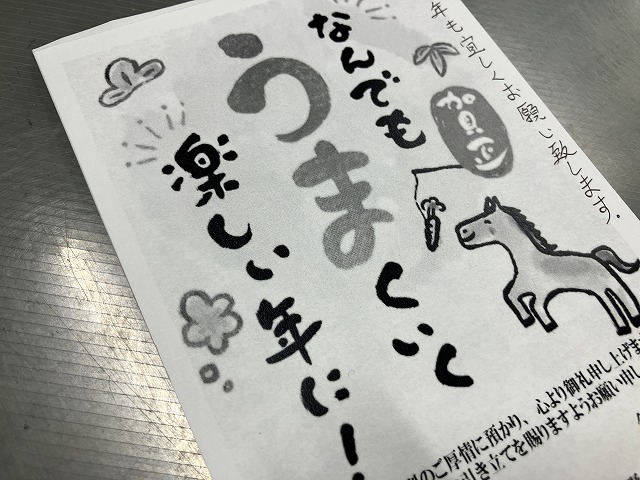 年も宜しくお願い致します。
賀正
なんでも
うまくいく
楽しい年に！
のご厚情に預かり、心より御礼申し上げま
引き立てを賜りますようお願い申し